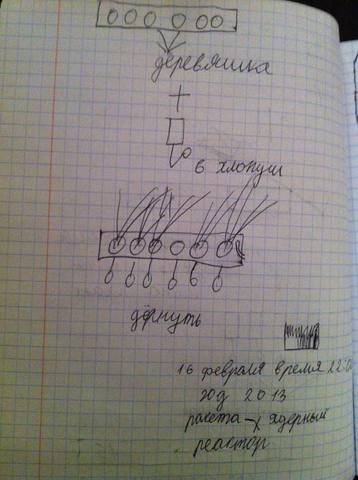 деревяшка
+
6 хлопуш
дёрнуть
16 февраля время 22:0
год 2013
ракета-х ядерный
реактор